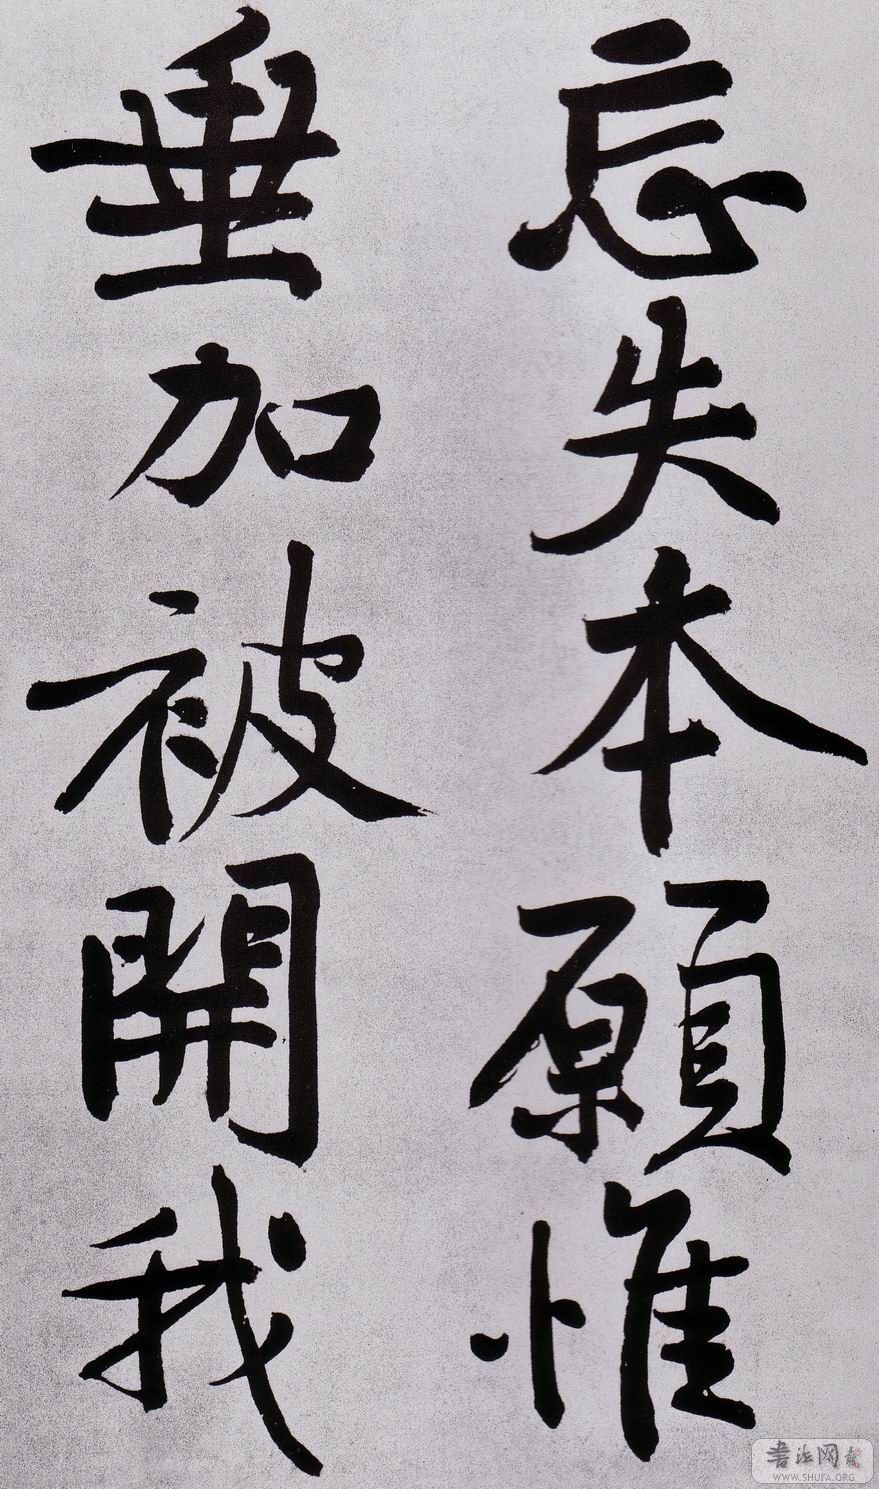 忘失本願惟
垂加被開我
書法网
WWW.SHUFA.ORG